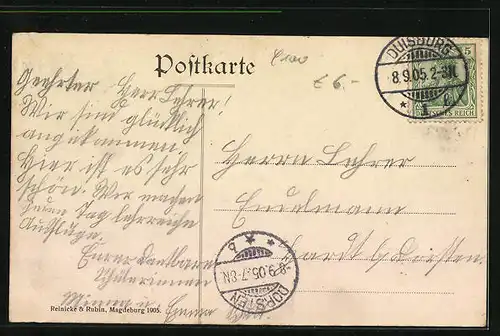 Postkarte
€ 6.-
DUISBURG
8.9.05.2-3N.
* 1 c
5
DEUTSCHES REICH
Geehrter Herr Lehrer!
Wir sind glücklich
angekommen.
Hier ist es sehr
schön. Wir machen
jeden Tag lehrreiche
Ausflüge.
Eure dankbaren
Schülerinnen
Minna u. Emma
Herrn Lehrer
Endelmann
Hardt b/Dorsten
DORSTEN
8.9.05.7-8N.
* b *
Reinicke & Rubin, Magdeburg 1905.